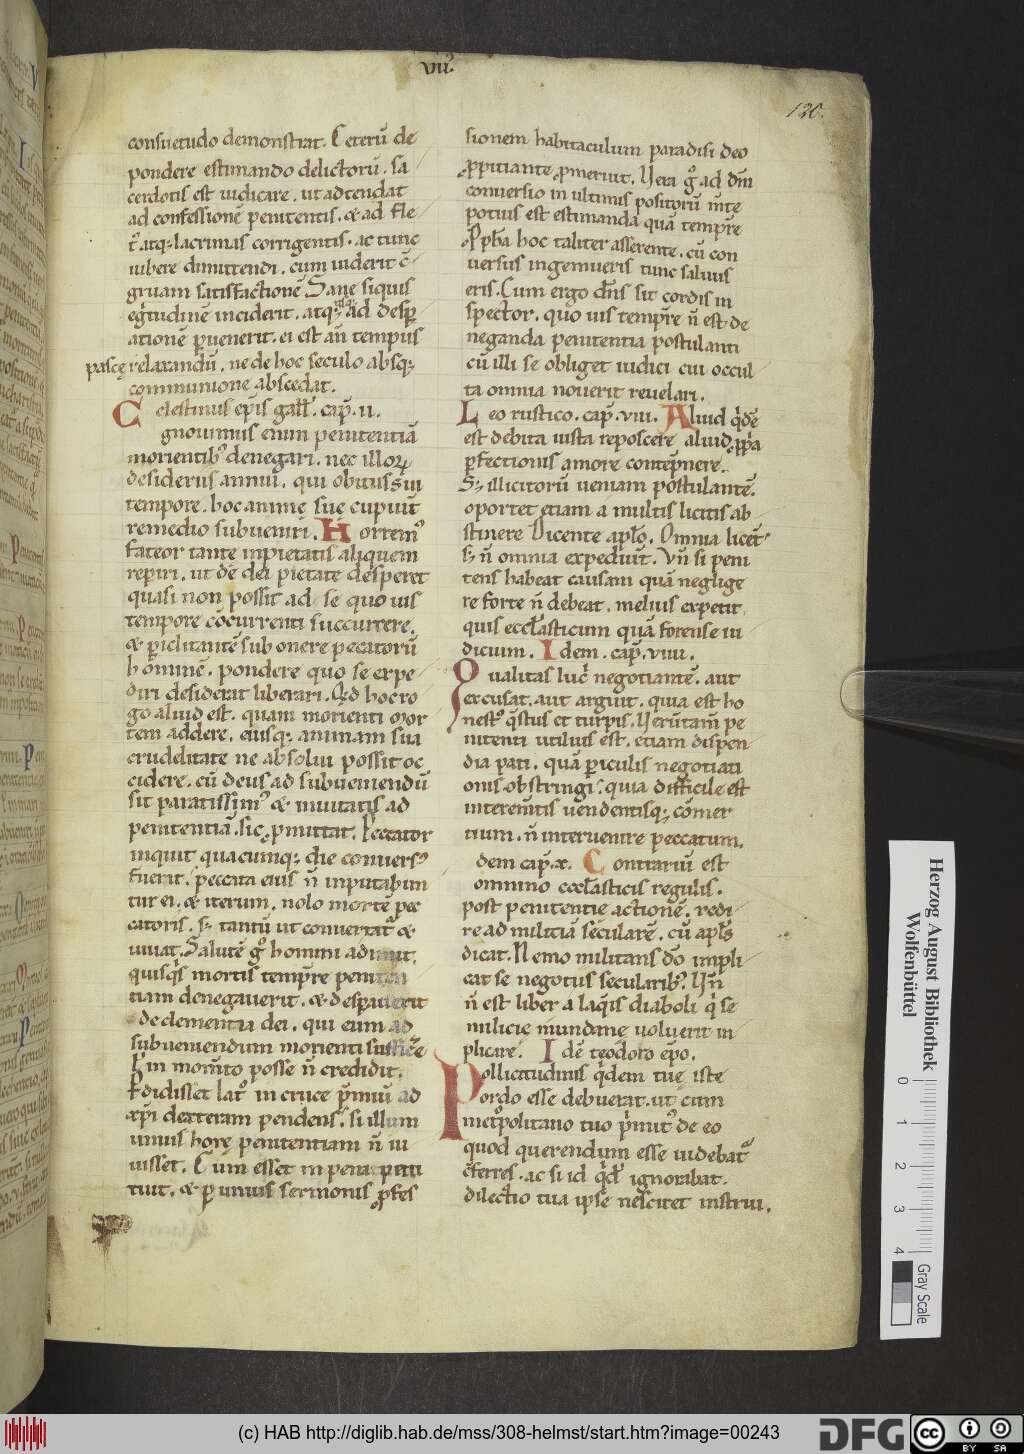 vıı.
120.
consuetudo demonstrat. Ceterū de
pondere estimando delictorū. sa
cerdotis est iudicare. ut adtendat
ad confessionē penitentis. & ad fle
t' atq; lacrimas corrigentis. ac tunc
iubere dimittendi. cum uiderit c̄
gruam satisfactionē Sane siquis
egtudinē inciderit. atq; ad desp
ationē puenerit. ei est añ tempus
pascę relaxandū. ne de hoc seculo absq;
communione abscedat.
Celestinus ep̄is gall'. cap. ii.
gnouimus enim penitentiā
morientib; denegari. nec illoꝝ
desideriis annui. qui obitus sui
tempore. hoc anime sue cupiūt
remedio subueniri. Horrem'
fateor tante inpietatis aliquem
repiri. ut de dei pietate desperet
quasi non possit ad se quo uis
tempore cōcurrenti succurrere.
& piclitantē sub onere peccatorū
hominē. pondere quo se expe
diri desiderat liberari. Qd hoc ro
go aliud est. quam morienti mor
tem addere. eiusq; animam sua
crudelitate ne absolui possit oc
cidere. cū deus ad subueniendū
sit paratissim' & inuitatis ad
penitentiā. sic pmittat. Peccator
inquit quacumq; die conuers'
fuerit. peccata eius ñ inputabun
tur ei. & iterum. nolo mortē pec
catoris. s; tantū ut conuertat' &
uiuat. Salutē g° homini adimit.
quisqs mortis tempre peniten
tiam denegauerit. & despauerit
de clementia dei. qui eum ad
subueniendum morienti sufficē
in momto posse ñ credidit.
Pdidisset lat° in cruce pmiū ad
xpi dexteram pendens. si illum
unius hore penitentiam ñ iu
uisset. Cum esset in pena peni
tuit. & p unius sermonis pfes
sionem habitaculum paradisi deo
ppitiante pmeruit. Uera g° ad dm̄
conuersio in ultimis positorū m̄te
potius est estimanda quā tempre
Ppha hoc taliter asserente. cū con
uersus ingemueris tunc saluus
eris. Cum ergo dn̄s sit cordis in
spector. quo uis tempre ñ est de
neganda penitentia postulanti
cū illi se obliget iudici cui occul
ta omnia nouerit reuelari.
Leo rustico. cap. viii. Aliud qdē
est debita iusta reposcere aliud ppa
pfectionis amore contēpnere.
S; illicitorū ueniam postulantē.
oportet etiam a multis licitis ab
stinere Dicente aplo. Omnia licet
s; ñ omnia expediūt. Vñ si peni
tens habeat causam quā neglige
re forte ñ debeat. melius expetit
quis ecclasticum quā forense iu
dicium. Idem. cap. viiii.
Qualitas luc' negotiantē. aut
excusat. aut arguit. quia est ho
nest' qstus et turpis. Uerūtam pe
nitenti utilius est. etiam dispen
dia pati. quā piculis negotiati
onis obstringi. quia difficile est
interemtis uendentisq; cōmer
tium. ñ interuenire peccatum.
dem cap. x. Contrariū est
omnino ecclasticis regulis.
post penitentie actionē. redi
re ad militiā secularē. cū apls
dicat. Nemo militans dō impli
cat se negotiis secularib;. Uñ
ñ est liber a laqis diaboli q' se
milicie mundane uoluerit in
plicare. Idē teodoro epo.
Pollicitudinis qdem tue iste
ordo esse debuerat. ut cum
metpolitano tuo pmit' de eo
quod querendum esse uidebat'
cferres. ac si id qd' ignorabat.
dilectio tua ipse nesciret instrui.
Herzog August Bibliothek
Wolfenbüttel
0 1 2 3 4
Gray Scale
(c) HAB http://diglib.hab.de/mss/308-helmst/start.htm?image=00243
DFG
cc BY SA